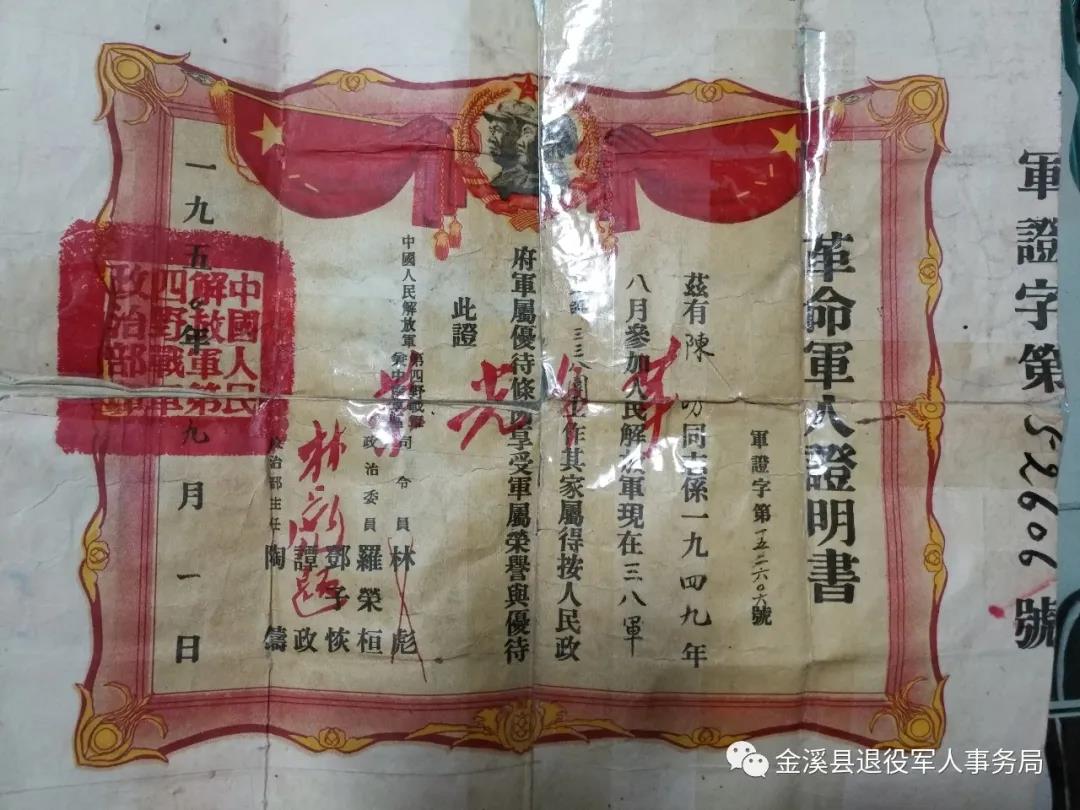 軍證字第52606號
革命軍人證明書
軍證字第一五二六〇六號
茲有陳 同志係一九四九年
八月參加人民解放軍現在三八軍
三三八團工作其家屬得按人民政
府軍屬優待條例享受軍屬榮譽與優待
此證
光
中國人民解放軍第四野戰軍兼中南軍區司令員林彪
政治委員羅榮桓
鄧子恢
譚政
政治部主任陶鑄
林
題
一九五〇年九月一日
中國人民
解放軍第
四野戰軍
政治部
金溪县退役军人事务局